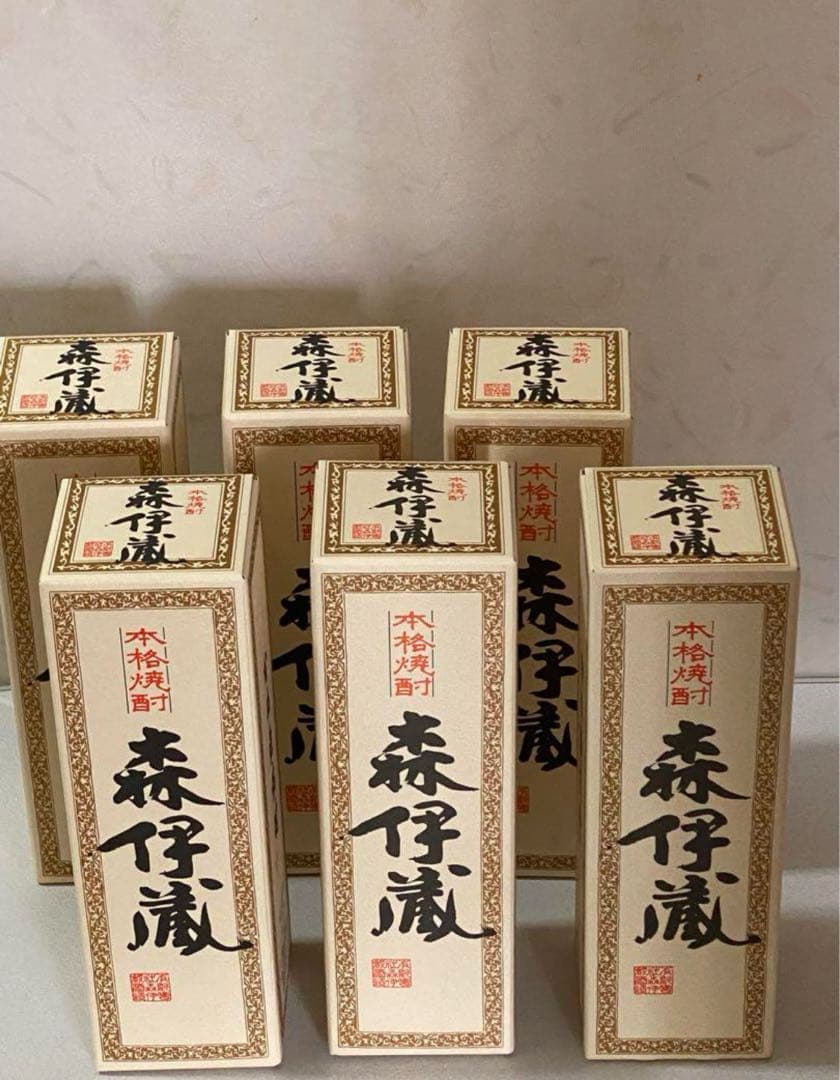 本格焼酎
森伊蔵
本格焼酎
森伊蔵
本格焼酎
森伊蔵
本格焼酎
森伊蔵
本格焼酎
森伊蔵
本格焼酎
森伊蔵
本格焼酎
森伊蔵
本格焼酎
森伊蔵
本格焼酎
森伊蔵
本格焼酎
森伊蔵
本格焼酎
森伊蔵